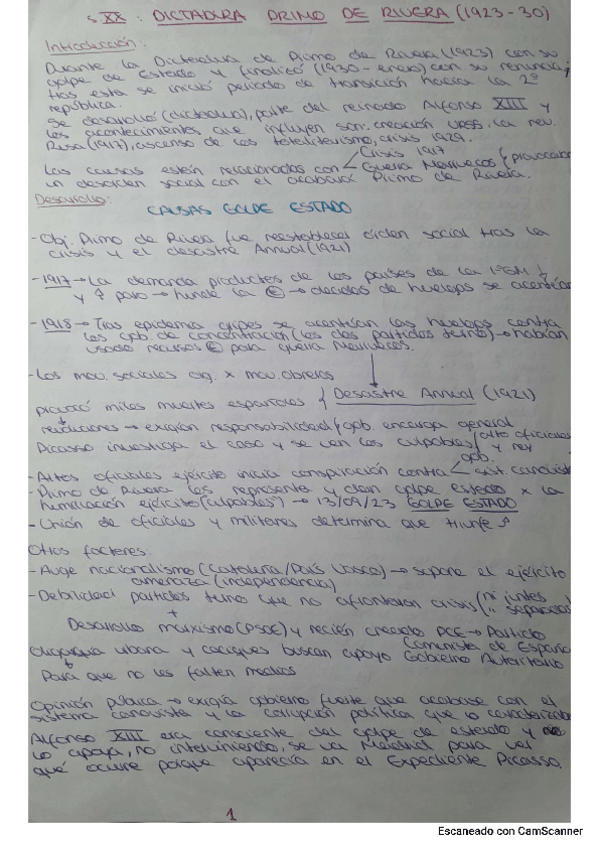 S XX: DICTADURA PRIMO DE RIVERA (1923-30)
Introducción:
Durante la Dictadura de Primo de Rivera (1923) con su
golpe de Estado y finalizó (1930-enero) con su renuncia;
tras esta se inició periodo de transición hacia la 2º
república.
Se desarrolló (dictadura), parte del reinado Alfonso XIII y
los acontecimientos que influyen son: creación URSS, la rev.
Rusa (1917), ascenso de los totalitarismo, crisis 1929.
Crisis 1917
Las causas están relacionadas con Guerra Marruecos (provocaron
un desorden social con el acabará Primo de Rivera.
Desarrollo:
CAUSAS GOLPE ESTADO
- Obj. Primo de Rivera fue reestablecer orden social tras la
crisis y el desastre Annual (1921)
- 1917 → La demanda productos de los países de la 1ºGM ↓
y ↑ paro → hunde la € → decidos de huelgas se acentúan
- 1918 → Tras epidemia gripes se acentúan las huelgas contra
los gob. de concentración (los dos partidos turno) → habían
usado recursos € para guerra Marruecos.
- Los mov. sociales org. x mov. obreros
provocó miles muertes españoles { Desastre Annual (1921)
→ exigían responsabilidad / gob. encarga general
Picasso investiga el caso y se ven los culpables / alto oficiales
y rey
gob.
- Altos oficiales ejército inicia conspiración contra < sist. canovista
- Primo de Rivera los representa y dan golpe estado x la
humillación ejército (culpables) → 13/09/23 GOLPE ESTADO
- Unión de oficiales y militares determina que triunfe
Otros factores:
- Auge nacionalismo (Cataluña/País Vasco) → supone el ejército
amenaza (independencia)
- Debilidad partidos turno que no afrontaron crisis (ni juntos
" separados)
+
Desarrollo marxismo (PSOE) y recién creado PCE → Partido
Comunista de España
Oligarquía urbana y caciques buscan apoyo Gobierno Autoritario
Para que no les falten medios
Opinión pública → exigía gobierno fuerte que acabase con el
sistema canovista y la corrupción política que lo caracterizaba
Alfonso XIII era consciente del golpe de estado y
lo apoya, no interviniendo, se va Madrid para ver
qué ocurre porque aparecía en el Expediente Picasso.
1
Escaneado con CamScanner